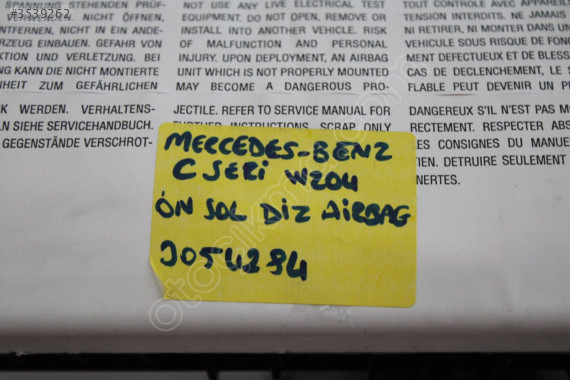 #3539262
SPANNUNG STEHENDEN PRÜF-
NICHT ÖFFNEN,
ENTFERNEN, NICHT IN EIN ANDE-
RZEUG EINBAUEN. GEFAHR VON
KTION UND VERLETZUNG. BEI
NG KANN DIE NICHT MONTIERTE
HEIT ZUM GEFÄHRLICHEN
CK WERDEN. VERHALTENS-
LN SIEHE SERVICEHANDBUCH.
GEGENSTÄNDE VERSCHROT-
NOT USE ANY LIVE ELECTRICAL TEST
EQUIPMENT. DO NOT OPEN, REMOVE OR
INSTALL INTO ANOTHER VEHICLE. RISK
OF MALFUNCTION AND PERSONAL
INJURY. UPON DEPLOYMENT, AN AIRBAG
UNIT WHICH IS NOT PROPERLY MOUNTED
MAY BECOME A DANGEROUS PRO-
JECTILE. REFER TO SERVICE MANUAL FOR
FURTHER INSTRUCTIONS. SCRAP ONLY
TOUT CONTROLE AVEC APPAREIL
TENSION INTERDITS. NE JAMAIS
NI RETIRER, NI MONTER DANS UN
VEHICULE SOUS RISQUE DE FONC
MENT DEFECTUEUX ET DE BLESS
CAS DE DECLENCHEMENT, LE S
FLABLE PEUT DEVENIR UN P
DANGEREUX S'IL N'EST PAS MO
RECTEMENT. RESPECTER ABS
LES CONSIGNES DU MANUE
TIEN. DETRUIRE SEULEMENT
INERTES.
MERCEDES-BENZ
C SERI W204
ÖN SOL DİZ AİRBAG
J054294